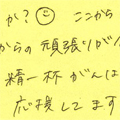 か? ここから
からの 頑張りが
精一杯 がんは
応援してます